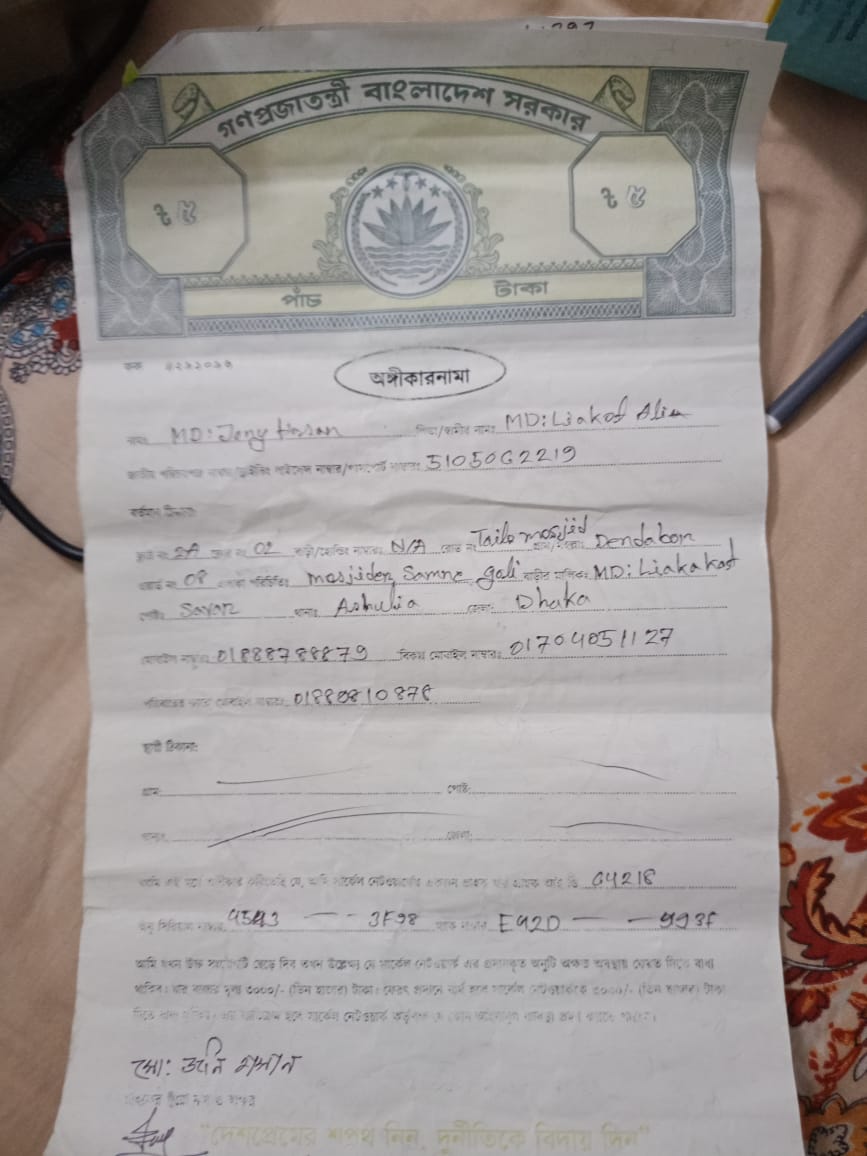 গণপ্রজাতন্ত্রী বাংলাদেশ সরকার
৳ ৫ ৳ ৫
পাঁচ টাকা
অঙ্গীকারনামা
নাম: MD: Jony Hasan পিতা/স্বামীর নাম: MD: Liakot Alia
জাতীয় পরিচয়পত্র নাম্বার/ড্রাইভিং লাইসেন্স নাম্বার/পাসপোর্ট নাম্বার: 5105062219
বর্তমান ঠিকানা:
ফ্ল্যাট নং 2A 02 বাড়ী/হোল্ডিং নাম্বার: N/A রোড নং Tailo mosjid Dendabor
ওয়ার্ড নং 08 এলাকা পরিচিতি: mosjider Samne goli বাড়ীর মালিক: MD: Liakakot
পোষ্ট: Savar থানা: Ashulia জেলা: Dhaka
মোবাইল নাম্বার: 01888788879 বিকল্প মোবাইল নাম্বার: 01704051127
মোবাইল নাম্বার: 01880810878
স্থায়ী ঠিকানা:
গ্রাম: পোষ্ট:
থানা: জেলা:
আমি এই মর্মে অঙ্গীকার করিতেছি যে, আমি সার্কেল নেটওয়ার্কের একজন গ্রাহক যার গ্রাহক আই ডি G4218
অনু সিরিয়াল নাম্বার 4543 — - 3F98 ম্যাক নাম্বার E42D — - 993F
আমি যখন উক্ত সংযোগটি ছেড়ে দিব তখন উল্লেখ্য যে সার্কেল নেটওয়ার্ক এর প্রদানকৃত অনুটি অক্ষত অবস্থায় ফেরত দিতে বাধ্য
থাকিব। যার বাজার মূল্য ৩০০০/- (তিন হাজার) টাকা। ফেরৎ প্রদানে ব্যর্থ হলে সার্কেল নেটওয়ার্ককে ৩০০০/- (তিন হাজার) টাকা
দিতে বাধ্য হলে সার্কেল নেটওয়ার্ক কর্তৃপক্ষ যে কোন আইনানুগ ব্যবস্থা গ্রহণ করতে পারবে।
মো: জনি হাসান
"দেশপ্রেমের শপথ নিন, দুর্নীতিকে বিদায় দিন"